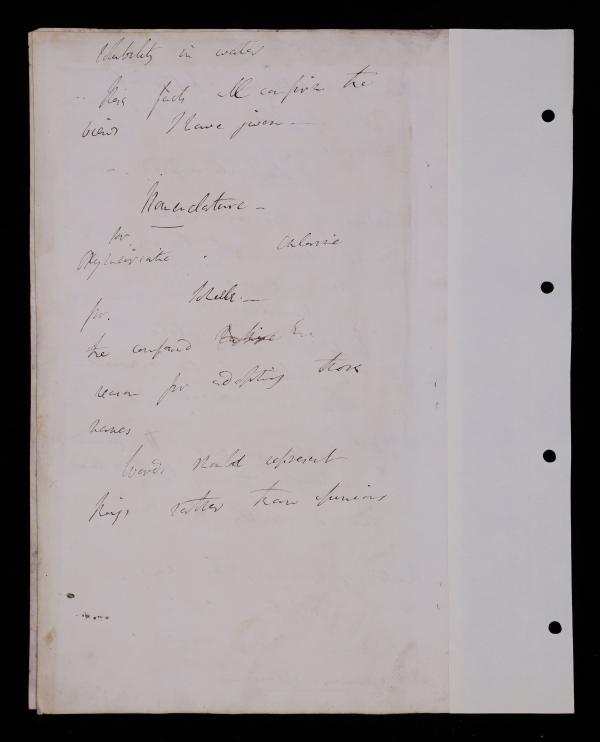 Solubility in water
These facts all confirm the
views I have given —
Nomenclature —
for
Oxymuriatic . Chlorine
for.
the compound
reason for adopting those
names
Words should represent
things rather than opinions